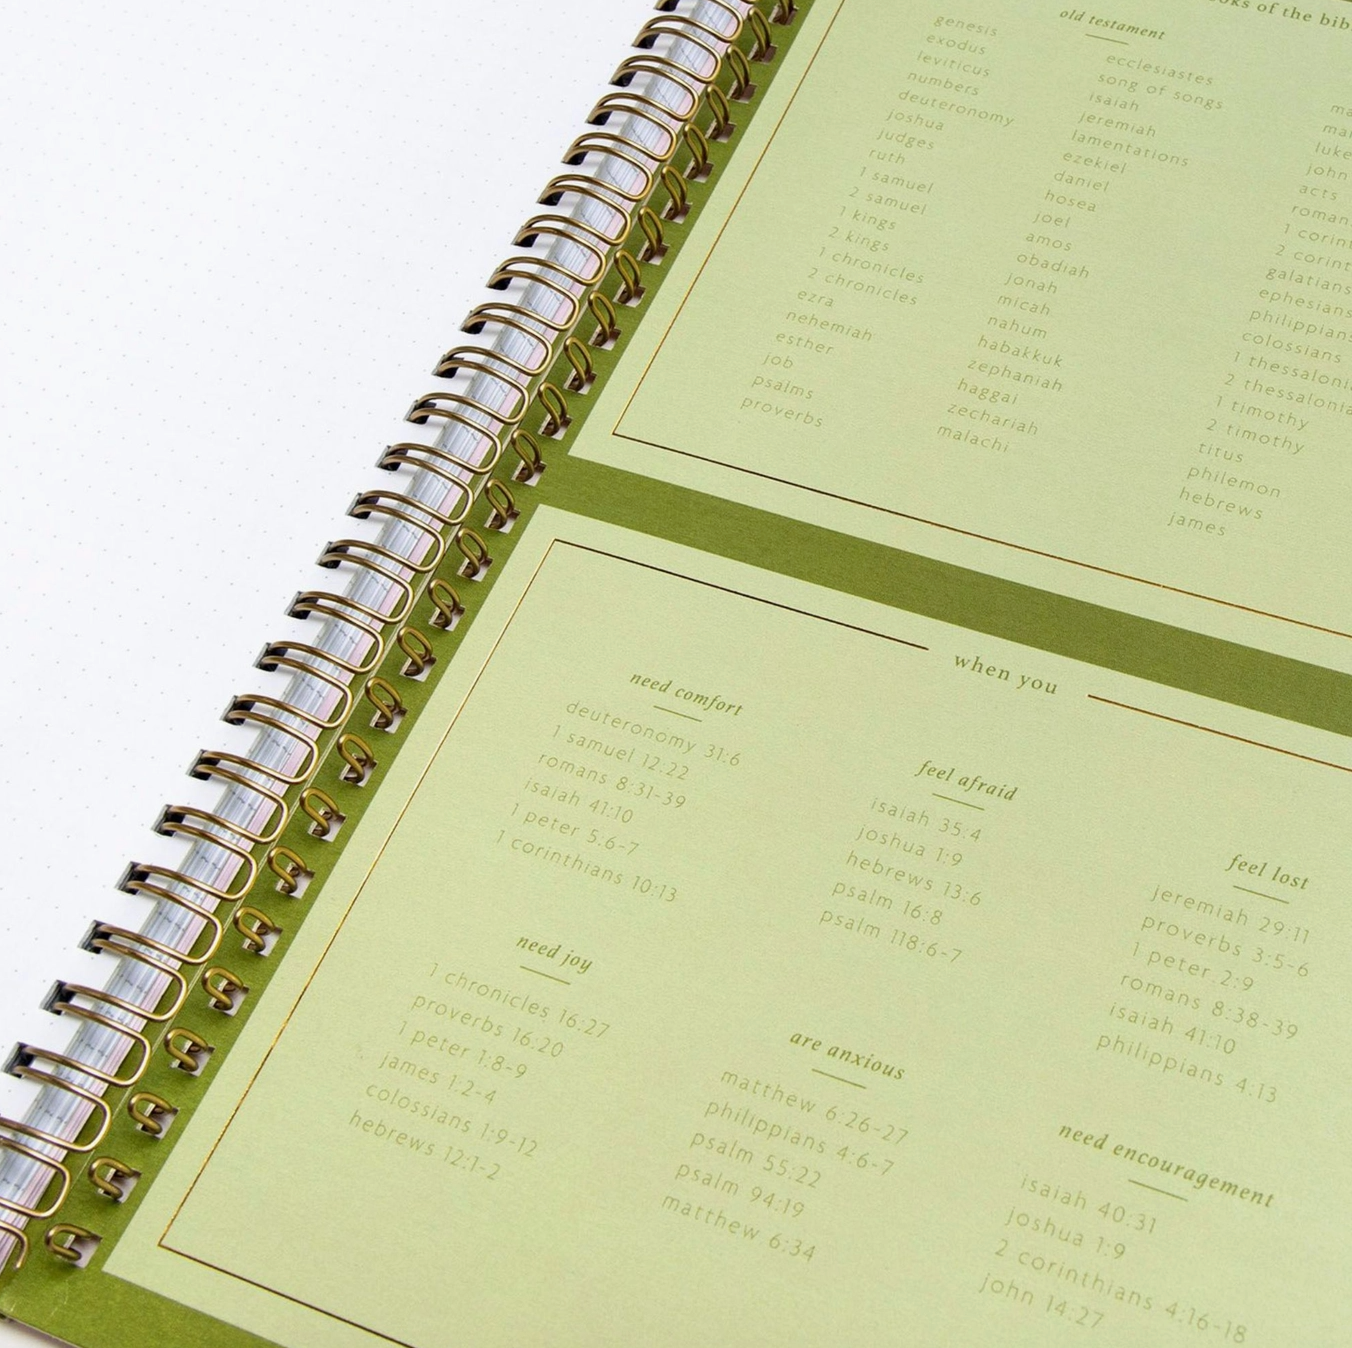 of the
old testament
genesis
exodus
leviticus
numbers
deuteronomy
joshua
judges
ruth
1 samuel
2 samuel
1 kings
2 kings
1 chronicles
2 chronicles
ezra
nehemiah
esther
job
psalms
proverbs
ecclesiastes
song of songs
isaiah
jeremiah
lamentations
ezekiel
daniel
hosea
joel
amos
obadiah
jonah
micah
nahum
habakkuk
zephaniah
haggai
zechariah
malachi
luke
john
acts
1
2
galatians
ephesians
philippians
colossians
1
2
1 timothy
2 timothy
titus
philemon
hebrews
james
when you
need comfort
deuteronomy 31:6
1 samuel 12:22
romans 8:31-39
isaiah 41:10
1 peter 5:6-7
1 corinthians 10:13
need joy
1 chronicles 16:27
proverbs 16:20
1 peter 1:8-9
james 1:2-4
colossians 1:9-12
hebrews 12:1-2
feel afraid
isaiah 35:4
joshua 1:9
hebrews 13:6
psalm 16:8
psalm 118:6-7
are anxious
matthew 6:26-27
philippians 4:6-7
psalm 55:22
psalm 94:19
matthew 6:34
feel lost
jeremiah 29:11
proverbs 3:5-6
1 peter 2:9
romans 8:38-39
isaiah 41:10
philippians 4:13
need encouragement
isaiah 40:31
joshua 1:9
2 corinthians 4:16-18
john 14:27